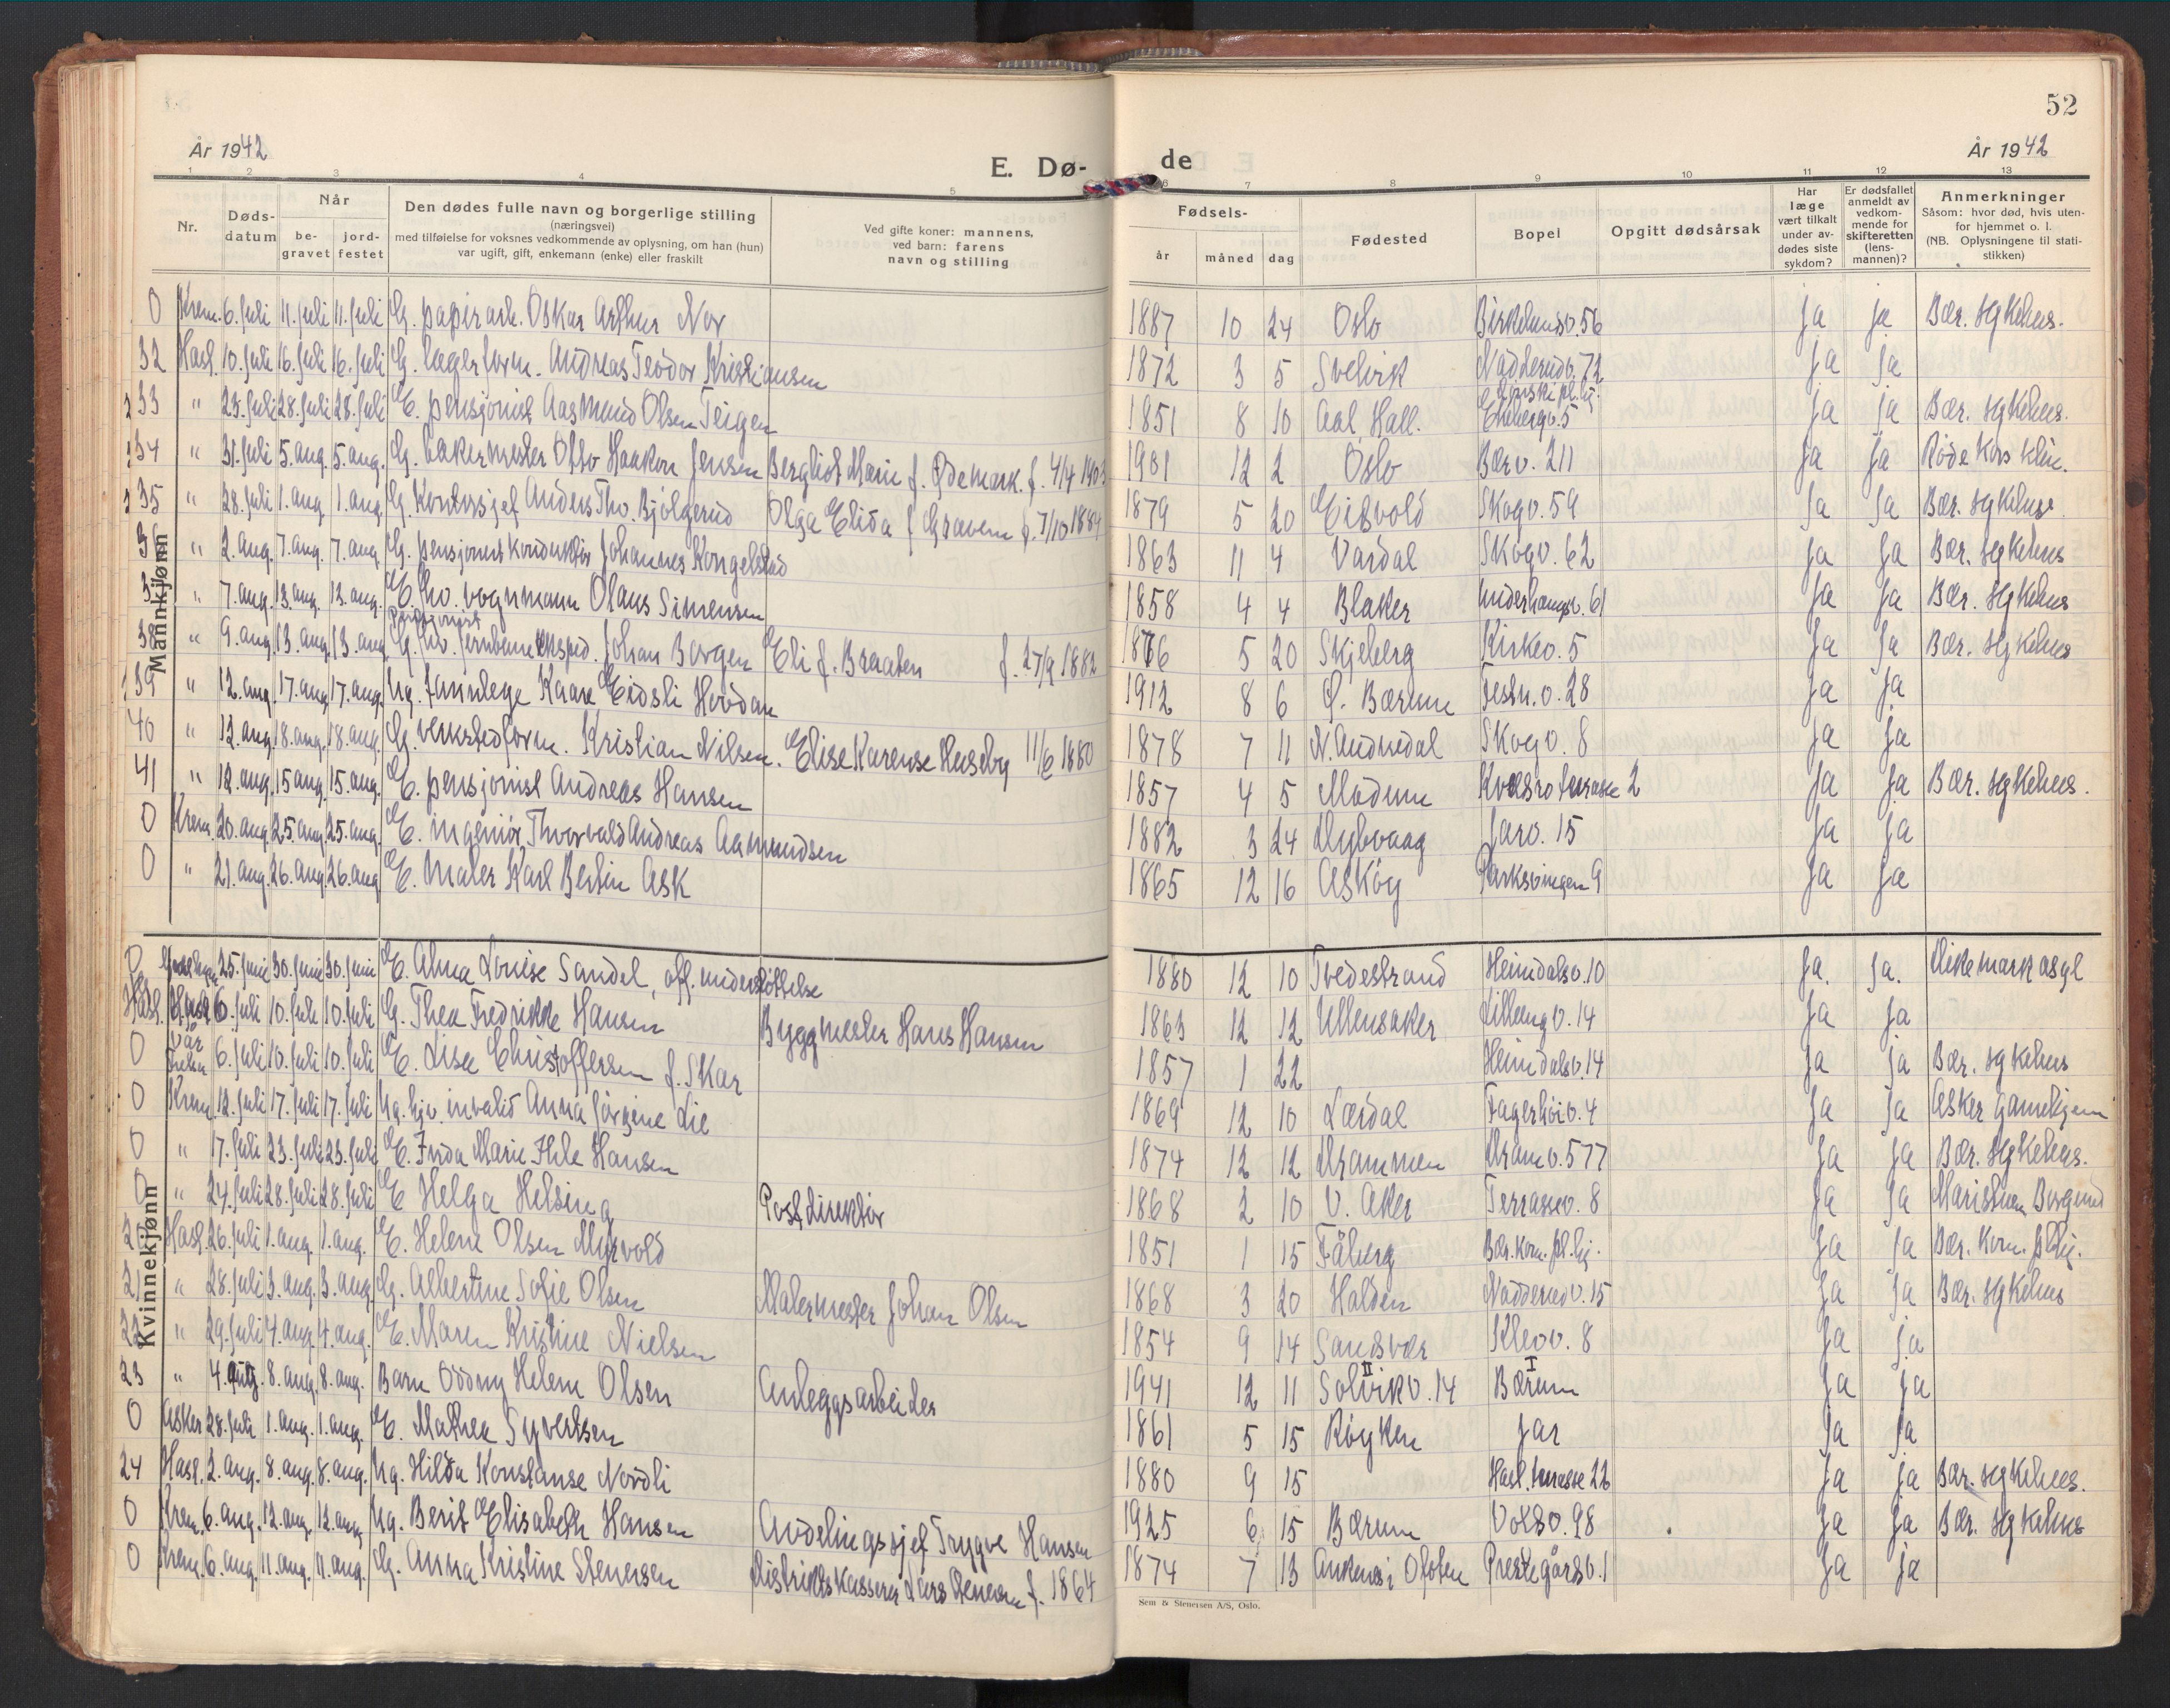 52
År 1942
E. Dø-
de
År 1942
1 2 3 4 5 6 7 8 9 10 11 12 13
Nr.
Døds-
datum
Når
be-
gravet
jord-
festet
Den dødes fulle navn og borgerlige stilling
(næringsvei)
med tilføielse for voksnes vedkommende av oplysning, om han (hun)
var ugift, gift, enkemann (enke) eller fraskilt
Ved gifte koner: mannens,
ved barn: farens
navn og stilling
Fødsels-
år
måned
dag
Fødested
Bopel
Opgitt dødsårsak
Har
læge
vært tilkalt
under av-
dødes siste
sykdom?
Er dødsfallet
anmeldt av
vedkom-
mende for
skifteretten
(lens-
mannen)?
Anmerkninger
Såsom: hvor død, hvis uten-
for hjemmet o. l.
(NB. Oplysningene til stati-
stikken)
Mannkjønn
0 Krem. 6. juli 11. juli 11. juli G. papirarb. Oskar Arthur Nor 1887 10 24 Oslo Birkelundsv. 56 ja ja Bær. sykehus.
32 Hasl. 10. juli 16. juli 16. juli G. lagerform. Andreas Teodor Kristiansen 1872 3 5 Svelvik Nadderudv. 72 ja ja
33 " 23. juli 28. juli 28. juli E. pensjonist Aasmund Olsen Teigen 1851 8 10 Aal, Hall. Enebergv. 5 ja ja Bær. sykehus.
34 " 31. juli 5. aug. 5. aug. G. bakermester Otto Haakon Jensen Bergliot Marie f. Ødemark. f. 4/4 1903 1901 12 2 Oslo Bærv. 211 ja ja Røde Kors klin.
35 " 28. juli 1. aug. 1. aug. G. Kontorsjef Anders Thv. Bjølgerud Olga Elida f. Gravem f. 7/10 1884 1879 5 20 Eidsvold Skogv. 59 ja ja Bær. sykehus
" 2. aug. 7. aug. 7. aug. G. pensjonert konduktør Johannes Kongelstad 1863 11 4 Vardal Skogv. 62 ja ja Bær. sykehus
" 7. aug. 13. aug. 13. aug. E. fhv. vognmann Olaus Simensen 1858 4 4 Blaker Underhaugsv. 61 ja ja Bær. sykehus
38 " 9. aug. 13. aug. 13. aug. G. pensjonist fhv. jernbaneeksped. Johan Borgen Eli f. Braaten f. 27/9 1882 1876 5 20 Skjeberg Kirkev. 5 ja ja Bær. sykehus
39 " 12. aug. 17. aug. 17. aug. Ug. tannlege Kaare Eidsli Hovdan 1912 8 6 Ø. Bærum Festn.v. 28 ja ja
40 " 12. aug. 18. aug. 18. aug. G. verkstedform. Kristian Nilsen. Elise Karense Huseby 11/6 1880 1878 7 11 N. Audnedal Skogv. 8 ja ja
41 " 12. aug. 15. aug. 15. aug. E. pensjonist Andreas Hansen 1857 4 5 Modum terrasse 2 ja ja Bær. sykehus.
0 Krem. 20. aug. 25. aug. 25. aug. E. ingeniør Thvorvald Andreas Aamundsen 1882 3 24 Dybvaag Jarv. 15 ja ja
0 " 21. aug. 26. aug. 26. aug. E. Maler Karl Bertin Ask 1865 12 16 Askøy Parksvingen 9 ja ja
Kvinnekjønn
0 25. juni 30. juni 30. juni E. Alma Louise Sandel, off. understøttelse 1880 12 10 Tvedestrand Heimdalsv. 10 ja. ja. Dikemark asyl
Hasl. 6. juli 10. juli 10. juli G. Thea Fredrikke Hansen Byggmester Hans Hansen 1863 12 12 Ullensaker Lillengv. 14 ja ja
0 Vår Frelser 6. juli 10. juli 10. juli E. Lise Christoffersen f. Skar 1857 1 22 Heimdalsv. 14 ja ja Bær. sykehus
0 Krem. 12. juli 17. juli 17. juli Ug. hjv. invalid Anna Jørgine Lie 1869 12 10 Lærdal Fagerhøiv. 4 ja ja Asker gamlehjem
0 " 17. juli 23. juli 23. juli E. Frida Marie Ihle Hansen 1874 12 12 Drammen Dram.v. 577 ja ja Bær. sykehus.
0 " 24. juli 28. juli 28. juli E. Helga Helsing Postdirektør 1868 2 10 V. Aker Terrassev. 8 ja ja Maristuen, Borgund
20 Hasl. 26. juli 1. aug. 1. aug. E. Helene Olsen Myrvold 1851 1 15 Fåberg Bær. kom. pl.hj. ja ja Bær. kom. pl.hj.
21 " 28. juli 3. aug. 3. aug. G. Albertine Sofie Olsen Malermester Johan Olsen 1868 3 20 Halden Nadderudv. 15 ja ja Bær. sykehus
22 " 29. juli 4. aug. 4. aug. E. Maren Kristine Nielsen 1854 9 14 Sandsvær Kleov. 8 ja ja
23 " 4. aug. 8. aug. 8. aug. Barn Oddny Helene Olsen Anleggsarbeider 1941 12 11 II Solvikv. 14 I Bærum ja ja
0 Asker 28. juli 1. aug. 1. aug. E. Mathea Syvertsen 1861 5 15 Røyken Jar ja ja
24 Hasl. 2. aug. 8. aug. 8. aug. Ug. Hilda Konstanse Nordli 1880 9 15 Hasl. terrasse 22 ja ja Bær. sykehus.
0 Krem. 6. aug. 12. aug. 12. aug. Ug. Berit Elisabeth Hansen Avdelingssjef Trygve Hansen 1925 6 15 Bærum Vollsv. 98 ja ja Bær. sykehus
0 Krem. 6. aug. 11. aug. 11. aug. G. Anna Kristine Stenersen Distriktskasserer Lars Stenersen f. 1864 1874 7 13 Ankenes i Ofoten Prestegårdsv. 1 ja ja
Sem & Stenersen A/S, Oslo.